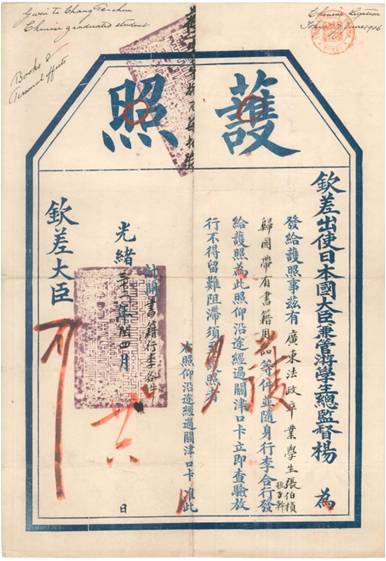 Given to Chang
Chinese graduate student
Books &
Personal effects
Chinese Legation
June, 1906
護照
欽差出使日本國大臣兼管游學生總監督楊 為
發給護照事茲有廣東法政畢業學生張伯楨
歸國帶有書籍用品等件並隨身行李合行發
給護照為此照仰沿途經過關津口卡立即查驗放
行不得留難阻滯須至護照者
計開書箱行李各件
右照仰沿途經過關津口卡准此
光緒三十二年閏四月廿六日
欽差大臣 行